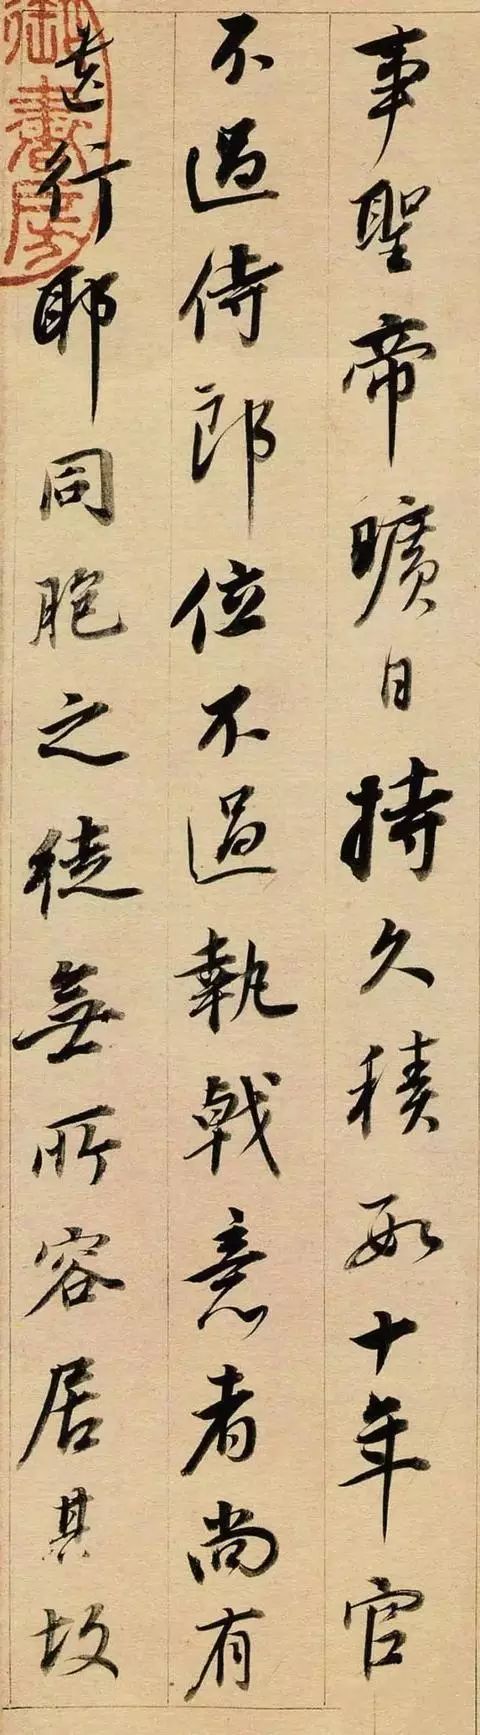 事聖帝曠日持久積數十年官
不過侍郎位不過執戟意者尚有
遺行耶同胞之徒無所容居其故
御書房